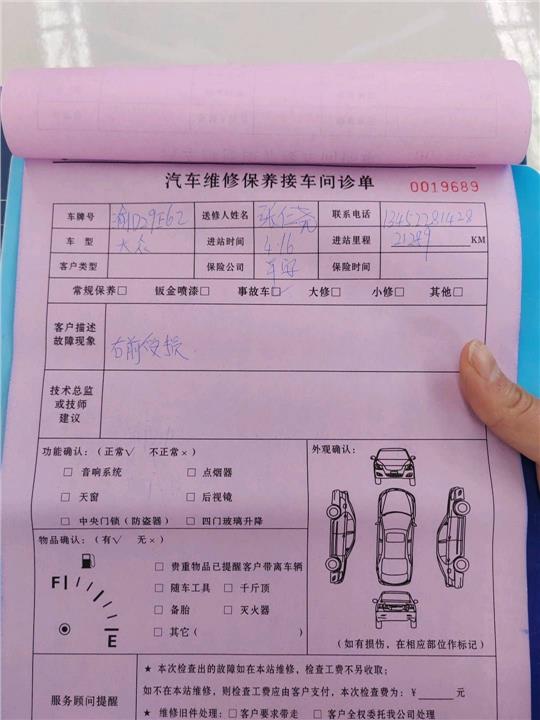 汽车维修保养接车问诊单
0019689
车牌号 渝D29F62 送修人姓名 张仁尧 联系电话 13452281428
车 型 大众 进站时间 4.16 进站里程 KM
客户类型 保险公司 平安 保险时间
常规保养□ 钣金喷漆□ 事故车□ 大修□ 小修□ 其他□
客户描述
故障现象
右前受损
技术总监
或技师
建议
功能确认：（正常√ 不正常×） 外观确认：
□ 音响系统 □ 点烟器
□ 天窗 □ 后视镜
□ 中央门锁（防盗器） □ 四门玻璃升降
物品确认：（有√ 无×）
□ 贵重物品已提醒客户带离车辆
F □ 随车工具 □ 千斤顶
□ 备胎 □ 灭火器
E □ 其它（ ）
（如有损伤，在相应部位作标记）
服务顾问提醒
★ 本次检查出的故障如在本站维修，检查工费不另收取；
如不在本站维修，则检查工费应由客户支付，本次检查费为：￥______元
★ 维修旧件处理：□ 客户要求带走 □ 客户全权委托我公司处理